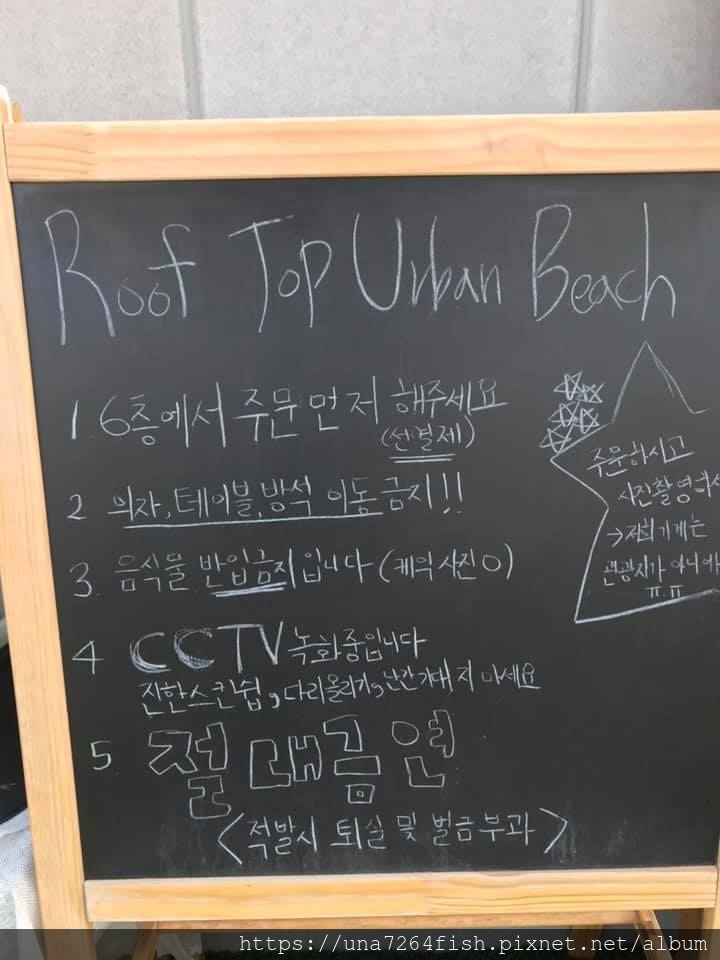 Roof Top Urban Beach
1. 6층에서 주문 먼저 해주세요
(선결제)
2 의자, 테이블, 방석 이동 금지!!
3. 음식물 반입금지입니다 (케익 사진 O)
4 CCTV 녹화중입니다
진한스킨쉽, 다리올리기, 난간 기대지 마세요
5 절대금연
<적발시 퇴실 및 벌금부과>
주문하시고
사진촬영하
→저희가게는
관광지가 아니
ㅠ.ㅠ
https://una7264fish.pixnet.net/album